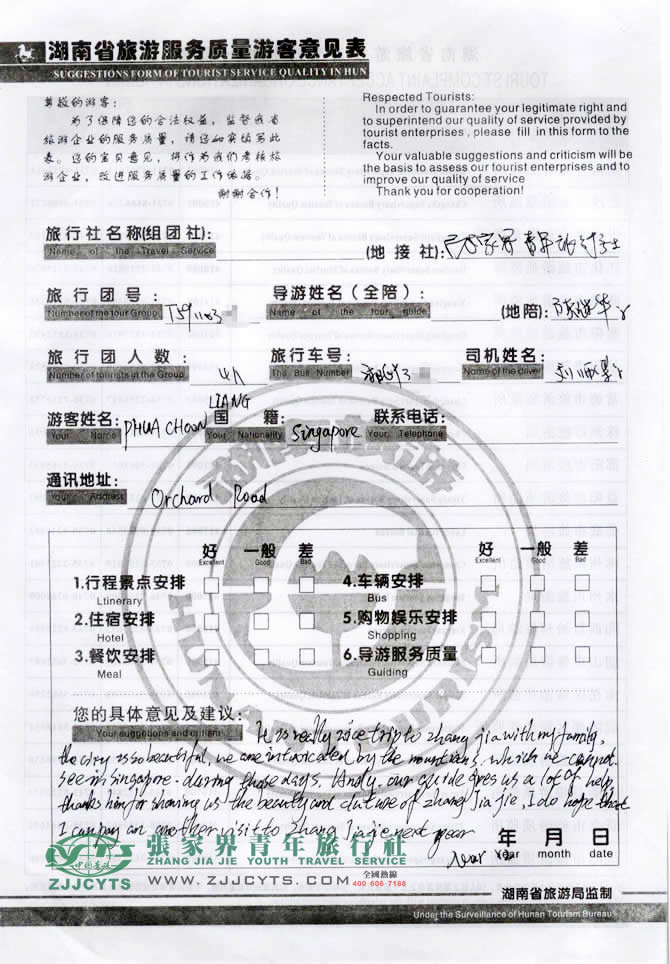 湖南省旅游服务质量游客意见表
SUGGESTIONS FORM OF TOURIST SERVICE QUALITY IN HUN
尊敬的游客:
为了保障您的合法权益，监督我省
旅游企业的服务质量，请您如实填写此
表。您的宝贝意见，将作为我们考核旅
游企业，改进服务质量的工作依据。
谢谢合作!
Respected Tourists:
In order to guarantee your legitimate right and
to superintend our quality of service provided by
tourist enterprises , please fill in this form to the
facts.
Your valuable suggestions and criticism will be
the basis to assess our tourist enterprises and to
improve our quality of service
Thank you for cooperation!
旅行社名称(组团社):
Name of the Travel Service
(地接社):
旅行团号:
Number of the tour Group
导游姓名(全陪):
Name of the tour guide
(地陪):
旅行团人数:
Number of tourists of the Group
旅行车号:
The Bus Number
司机姓名:
Name of the driver
游客姓名:
Your Name
PHUA CHOON LIANG
国籍:
Your Nationality
Singapore
联系电话:
Your Telephone
通讯地址:
Your Address
Orchard Road
好 一般 差
Excellent Good Bad
好 一般 差
Excellent Good Bad
1.行程景点安排
Ltinerary
4.车辆安排
Bus
2.住宿安排
Hotel
5.购物娱乐安排
Shopping
3.餐饮安排
Meal
6.导游服务质量
Guiding
您的具体意见及建议:
Your suggestions and critism
It is really nice trip to zhang jia with my family,
the city is so beautiful, we are intoxicated by the mountains, which we cannot
see in singapore. during those days, Andy, our guide gives us a lot of help,
thanks him for sharing us the beauty and culture of zhang Jia jie, I do hope that
I can pay an another visit to Zhang Jiajie next year
年 月 日
year month date
張家界青年旅行社
ZHANG JIA JIE YOUTH TRAVEL SERVICE
中国青旅
ZJJCYTS.COM
WWW.ZJJCYTS.COM
全國熱線
400-606-7188
湖南省旅游局监制
Under the Surveillance of Hunan Tourism Bureau